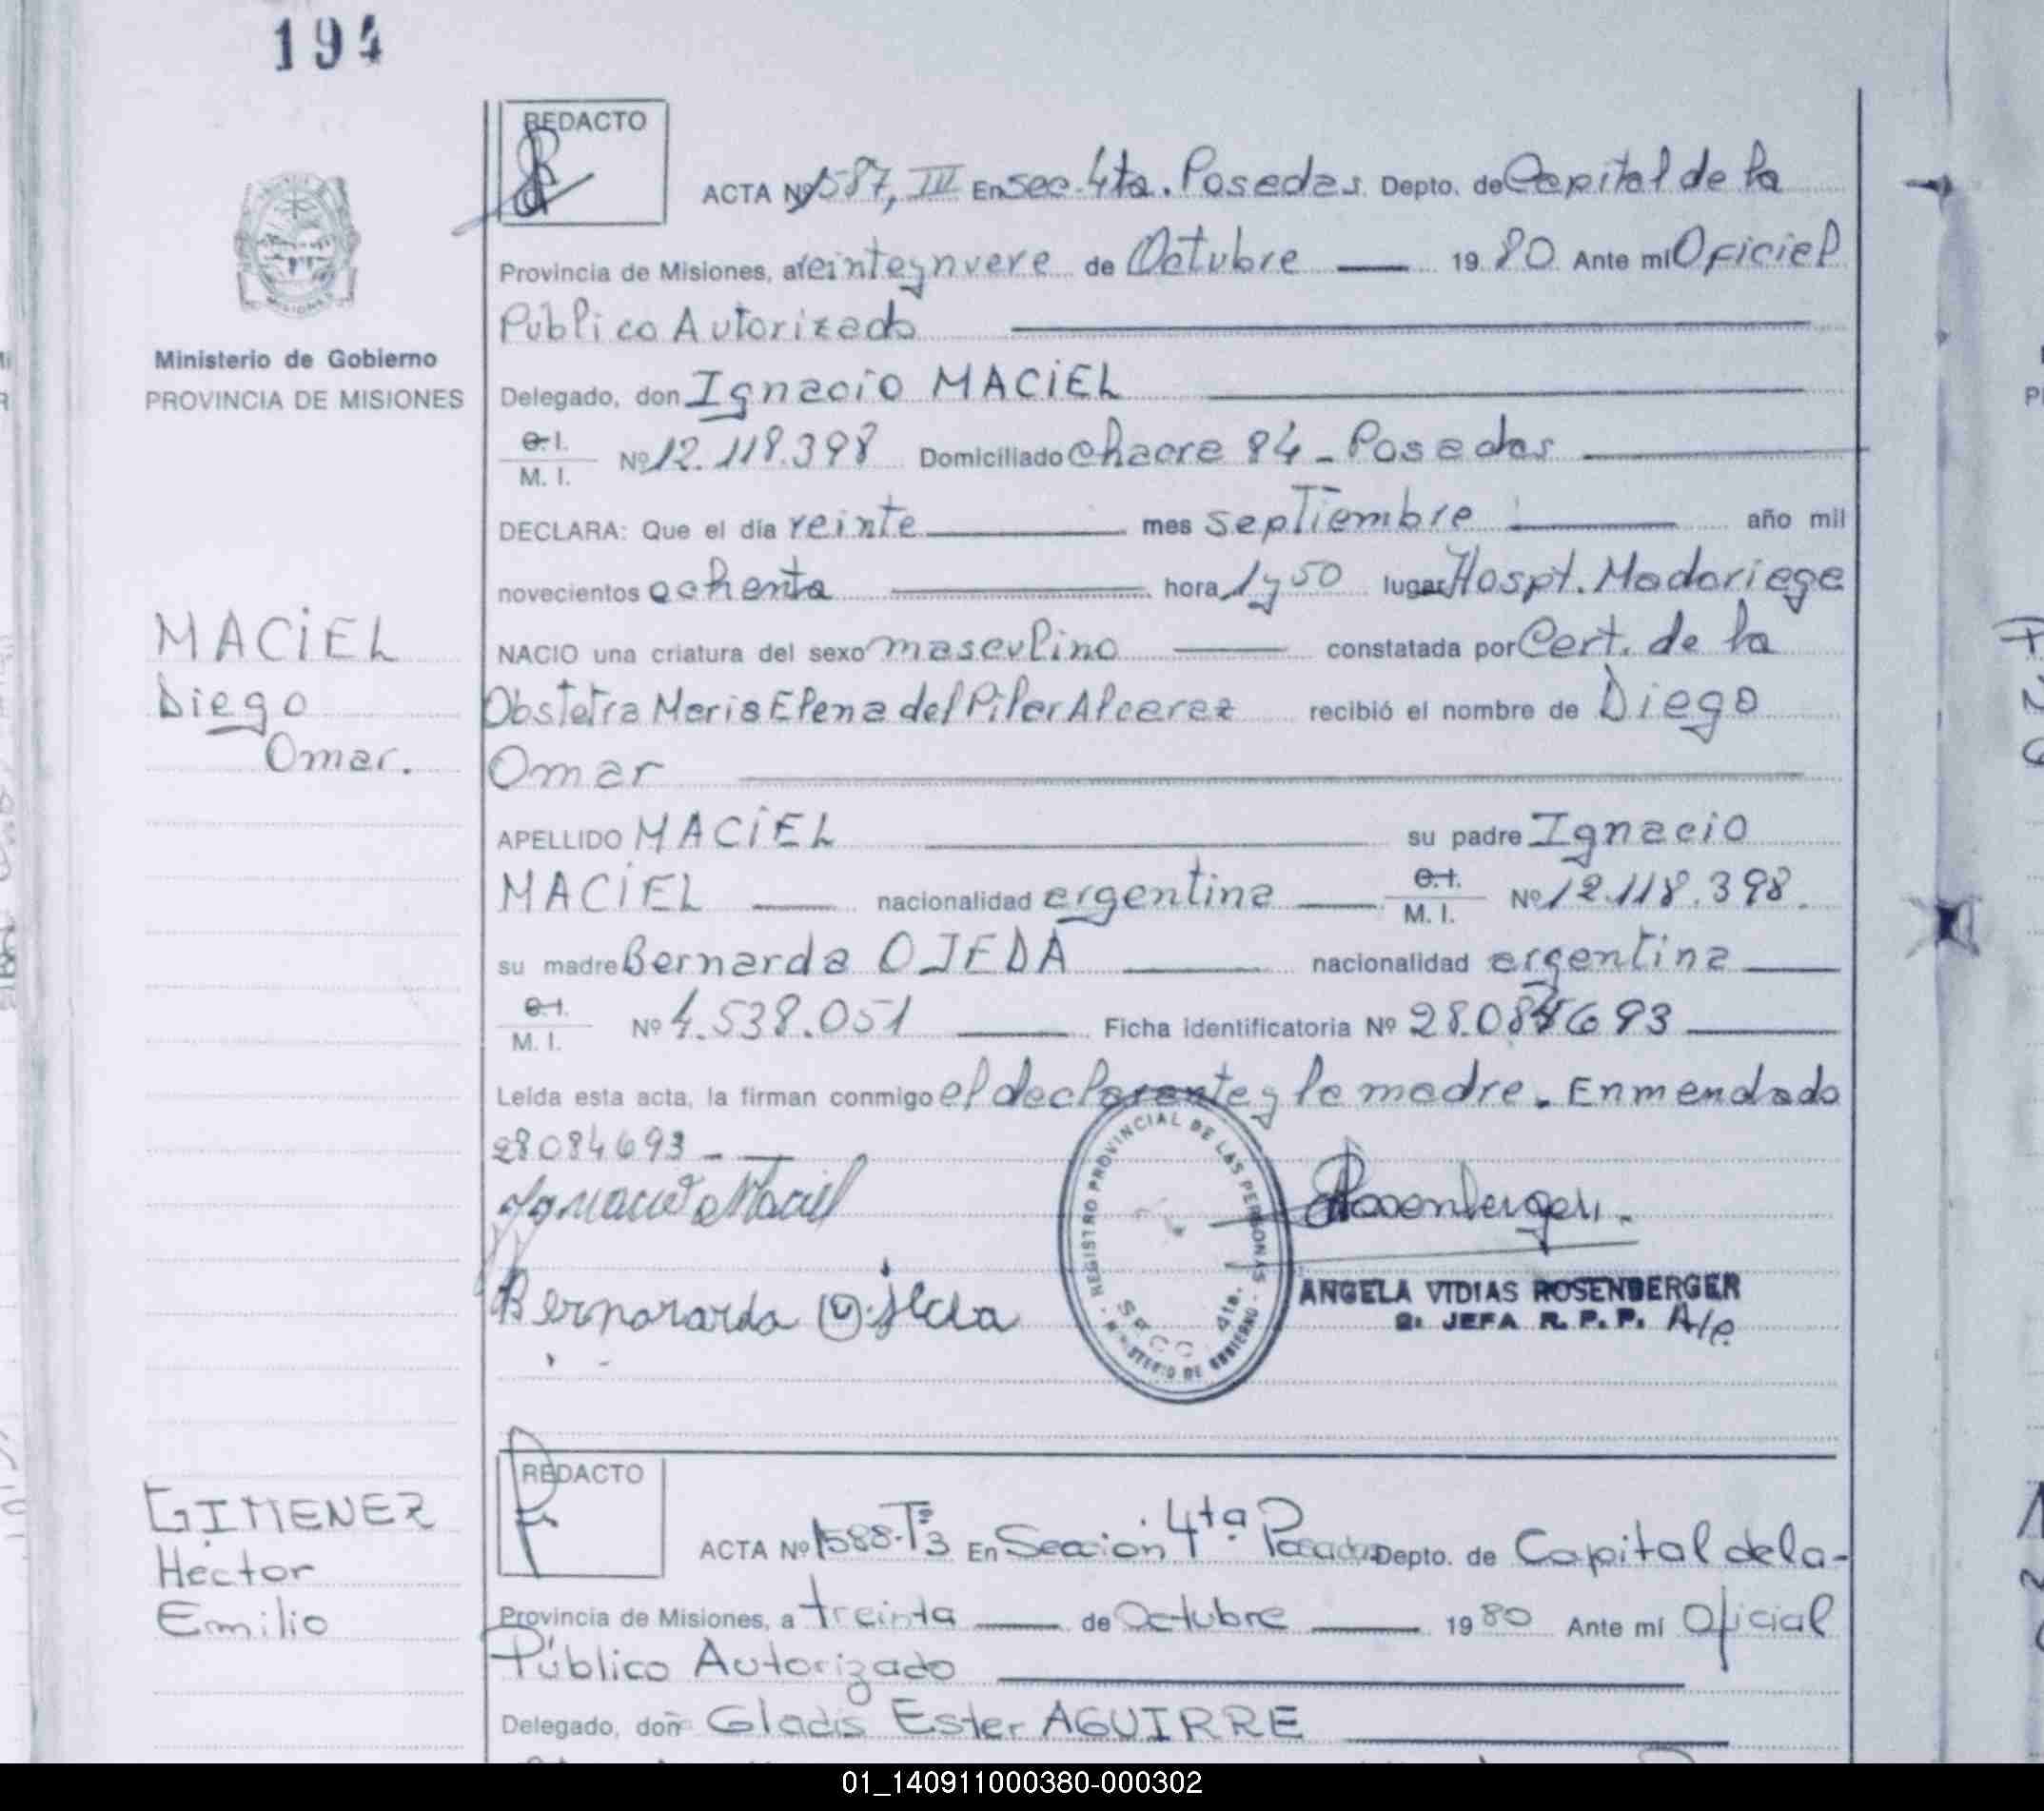 194
REDACTO
ACTA Nº 1587, III En sec. 4ta. Posadas Depto. de Capital de la
Provincia de Misiones, a veintey nueve de Octubre 19 80 Ante mi Oficial
Publico Autorizado
Ministerio de Gobierno
PROVINCIA DE MISIONES
Delegado, don Ignacio MACIEL
C. I.
M. I. Nº 12.118.398 Domiciliado chacra 84 - Posadas
DECLARA: Que el día veinte mes septiembre año mil
novecientos ochenta hora 1 y 50 lugar Hospt. Madariaga
MACIEL
Diego
Omar.
NACIO una criatura del sexo masculino constatada por Cert. de la
Obstetra Maria Elena del Pilar Alcaraz recibió el nombre de Diego
Omar
APELLIDO MACIEL su padre Ignacio
MACIEL nacionalidad argentina C. I. M. I. Nº 12.118.398.
su madre Bernarda OJEDA nacionalidad argentina
C. I.
M. I. Nº 4.538.051 Ficha identificatoria Nº 28.084693
Leída esta acta, la firman conmigo el declarante y la madre. Enmendado
28084693 -
Ignacio Maciel
Rosenberger
REGISTRO PROVINCIAL DE LAS PERSONAS
MINISTERIO DE GOBIERNO
4ta.
ANGELA VIDIAS ROSENBERGER
JEFA R. P. P. A/c
REDACTO
GIMENEZ
Hector
Emilio
ACTA Nº 1588-Tº3 En Sección 4ta Posadas Depto. de Capital de la-
Provincia de Misiones, a treinta de Octubre 19 80 Ante mí Oficial
Público Autorizado
Delegado, doña Gladis Ester AGUIRRE
01_140911000380-000302